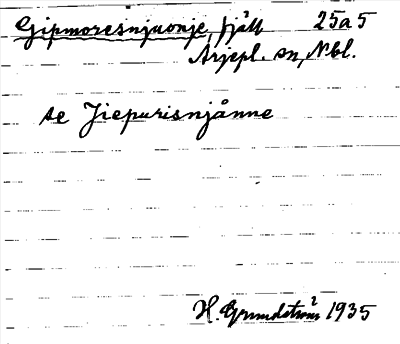 Gipmoresnjuonje, fjäll 25a5
Arjepl. sn, Nbl.
se Jiepurisnjånne
H. Grundström 2 1935